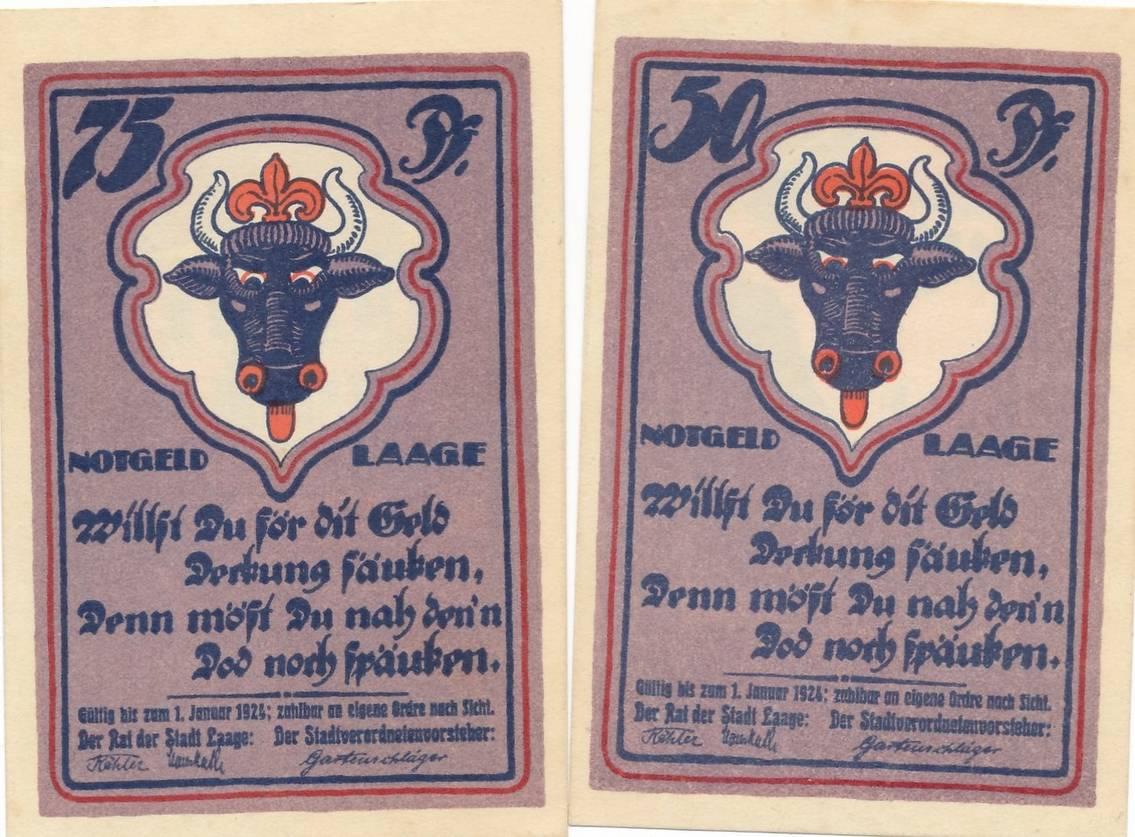 75 Pf.
NOTGELD LAAGE
Willst Du för dit Geld
Deckung säuken,
Denn möst Du nah den'n
Dod noch späuken.
Gültig bis zum 1. Januar 1924; zahlbar an eigene Ordre nach Sicht.
Der Rat der Stadt Laage: Der Stadtverordnetenvorsteher:
Köhler Gartenschläger
50 Pf.
NOTGELD LAAGE
Willst Du för dit Geld
Deckung säuken,
Denn möst Du nah den'n
Dod noch späuken.
Gültig bis zum 1. Januar 1924; zahlbar an eigene Ordre nach Sicht.
Der Rat der Stadt Laage: Der Stadtverordnetenvorsteher:
Köhler Gartenschläger